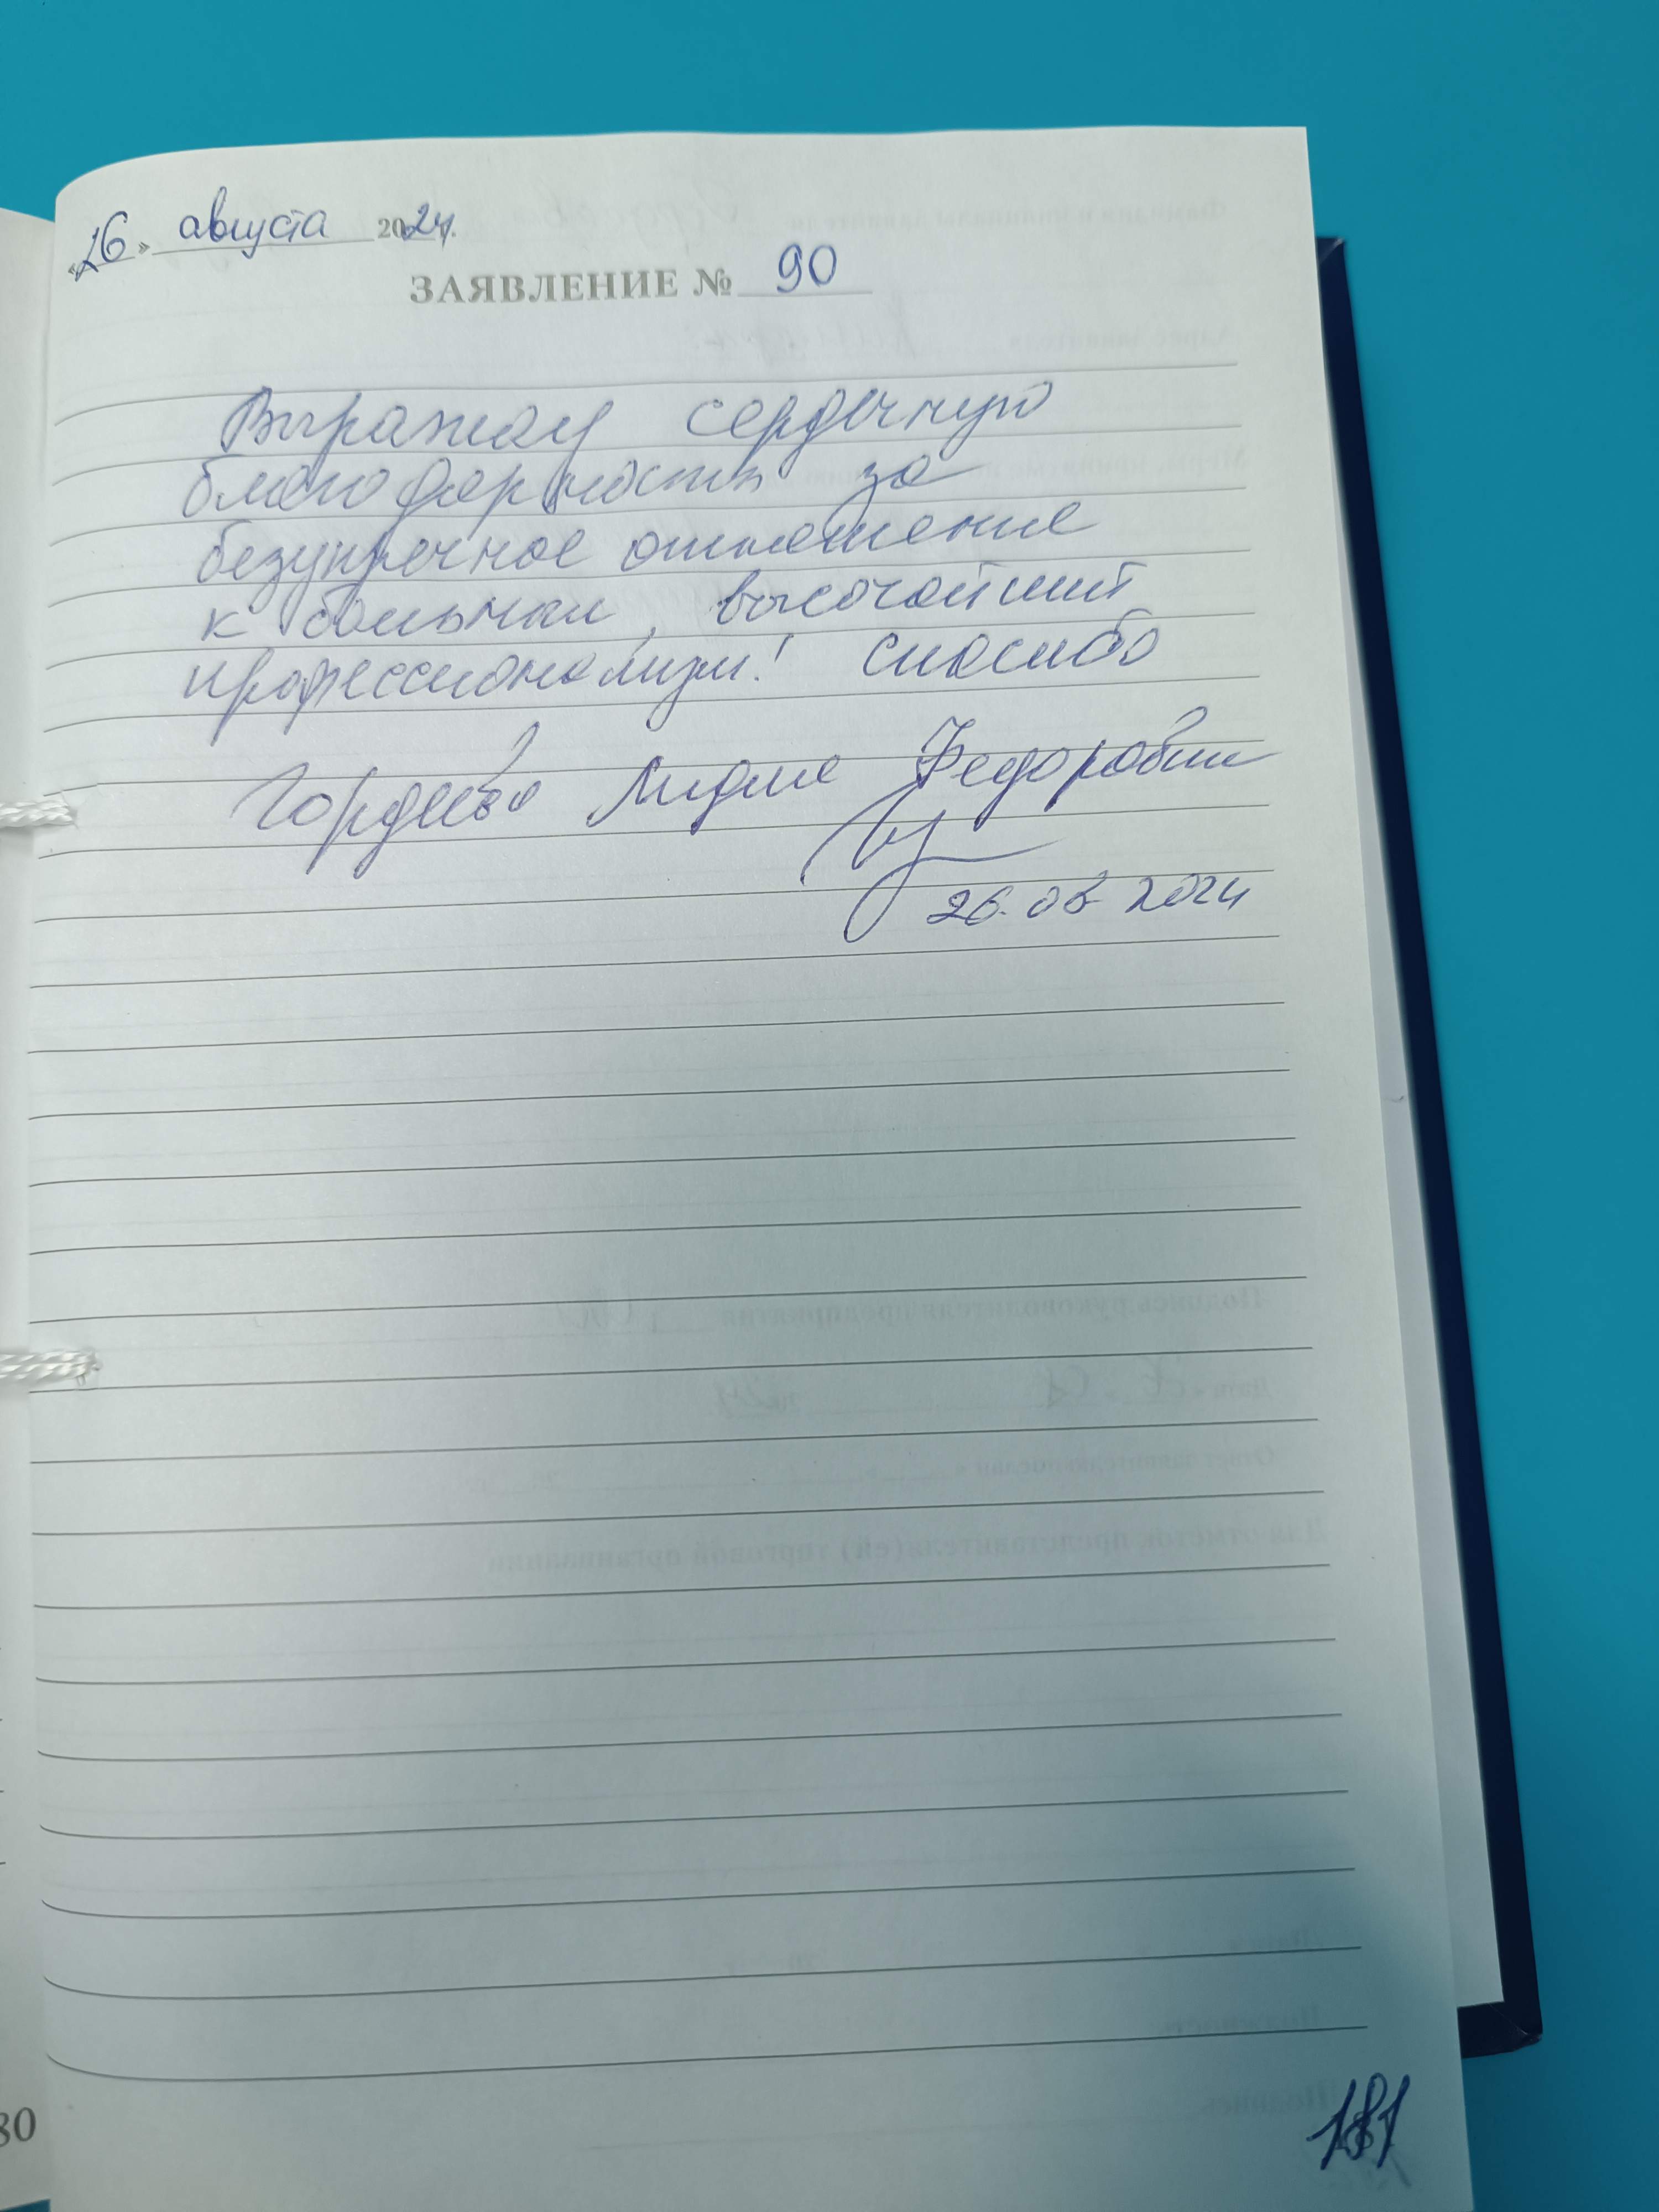 «26» августа 2024г.
ЗАЯВЛЕНИЕ № 90
Выражаю сердечную
благодарность за
безупречное отношение
к больным, высочайший
профессионализм! Спасибо
Гордеева Лидия Федоровна
26.08 2024
181
80